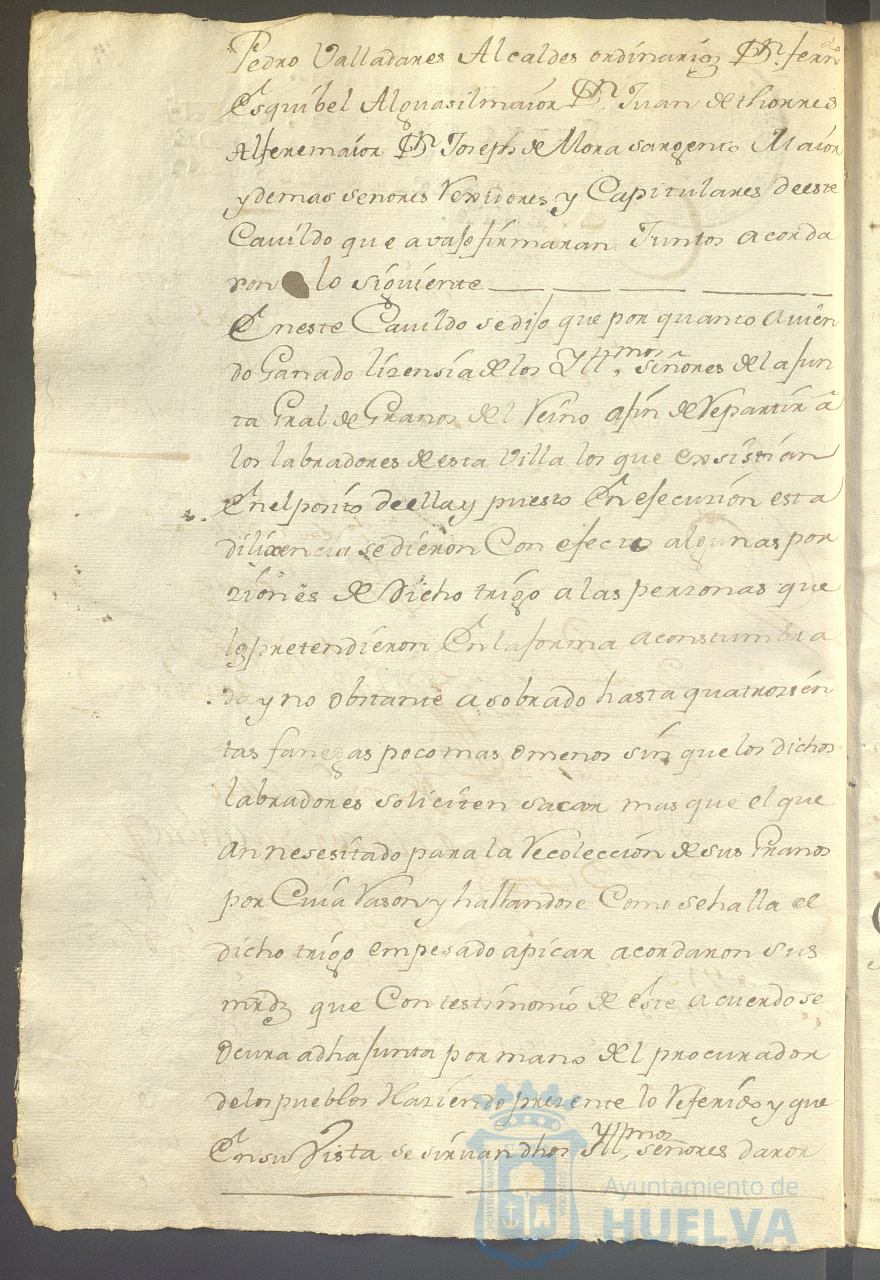 Pedro Valladares Alcaldes ordinarios Dn. ferndo
Esquibel Alguasilmaior Dn. Juan de thorres
Alferemaior Dn Joseph de Mora sargento Maior
y demas señores Rexidores y Capitulares de este
Cavildo que avajo firmaran Juntos acorda
ron lo siguiente
En este Cavildo se dijo que por quanto avien
do Ganado lizensia de los Yllmos señores de la Jun
ta Gral de Granos del Reino a fin de Repartir a
los labradores de esta Villa los que exsistian
En el posito de ella y puesto En ejecuzion esta
dilixencia se dieron Con efecto algunas por
ziones de dicho trigo a las perzonas que
lo pretendieron En la forma aconstumbra
da y no obstante a sobrado hasta quatrozien
tas fanegas poco mas o menos sin que los dichos
labradores soliciten sacar mas que el que
an nesesitado para la Recoleccion de sus Granos
por Cuia Rason y hallandose Como se halla el
dicho trigo empesado a picar acordaron sus
mrdz que Con testimonio de este acuerdo se
ocura a dha Junta por mano del procurador
de los pueblos Haziendo prezente lo Referido y que
En su Vista se sirvan dhos Yllmos señores dar or
Ayuntamiento de
HUELVA